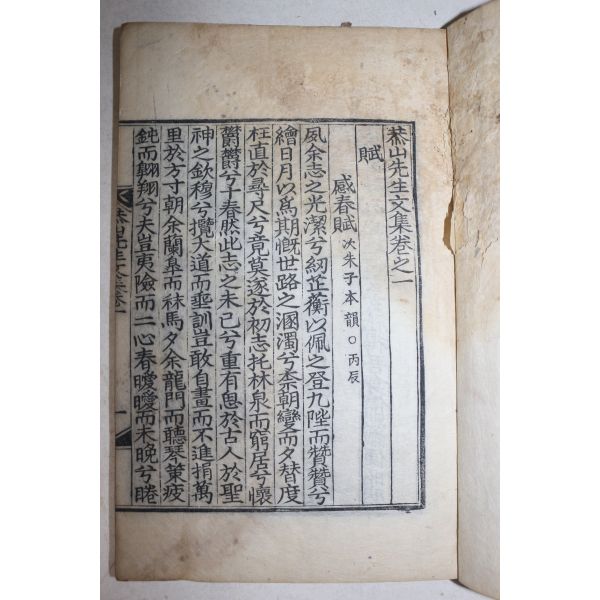 恭山先生文集卷之一
賦
感春賦 次朱子本韻 ○ 丙辰
夙余志之光潔兮紉芷蘅以佩之登九陛而贊贊兮
繪日月以爲期慨世路之溷濁兮柰朝變而夕替度
枉直於尋尺兮竟莫遂於初志托林泉而窮居兮懷
欝欝兮十春然此志之未已兮重有思於古人於聖
神之欽穆兮攬大道而垂訓豈敢自畫而不進捐萬
里於方寸朝余闌皐而秣馬夕余龍門而聽琴策疲
鈍而翺翔兮夫豈夷險而二心春曖曖而未晩兮睠